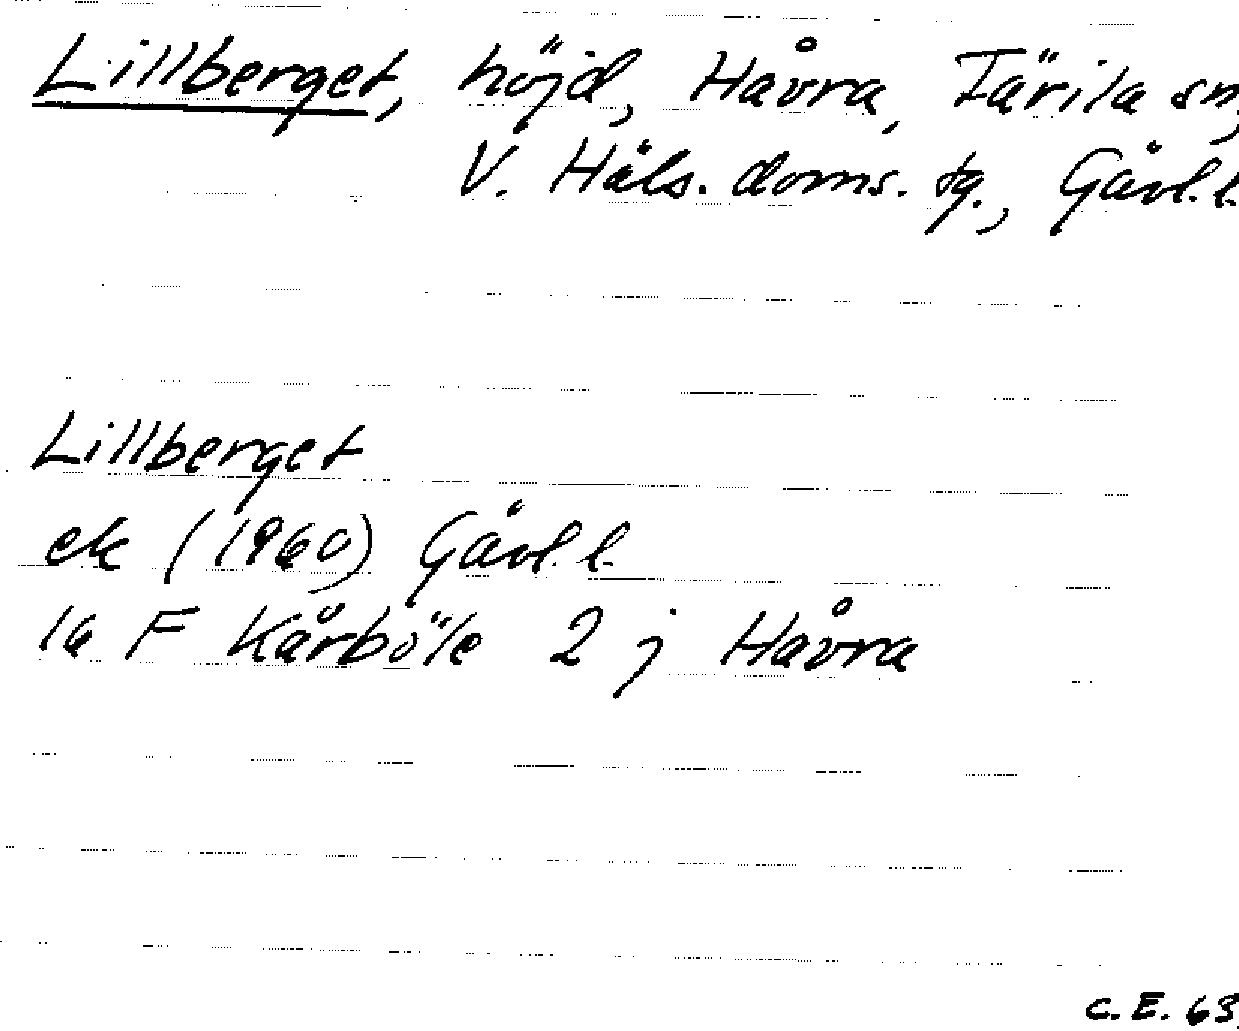 Lillberget, höjd, Håvra, Färila sn,
V. Häls. doms. tg., Gävl. l.
Lillberget
ek (1960) Gävl. l.
16 F Kårböle 2 j Håvra
C. E. 63